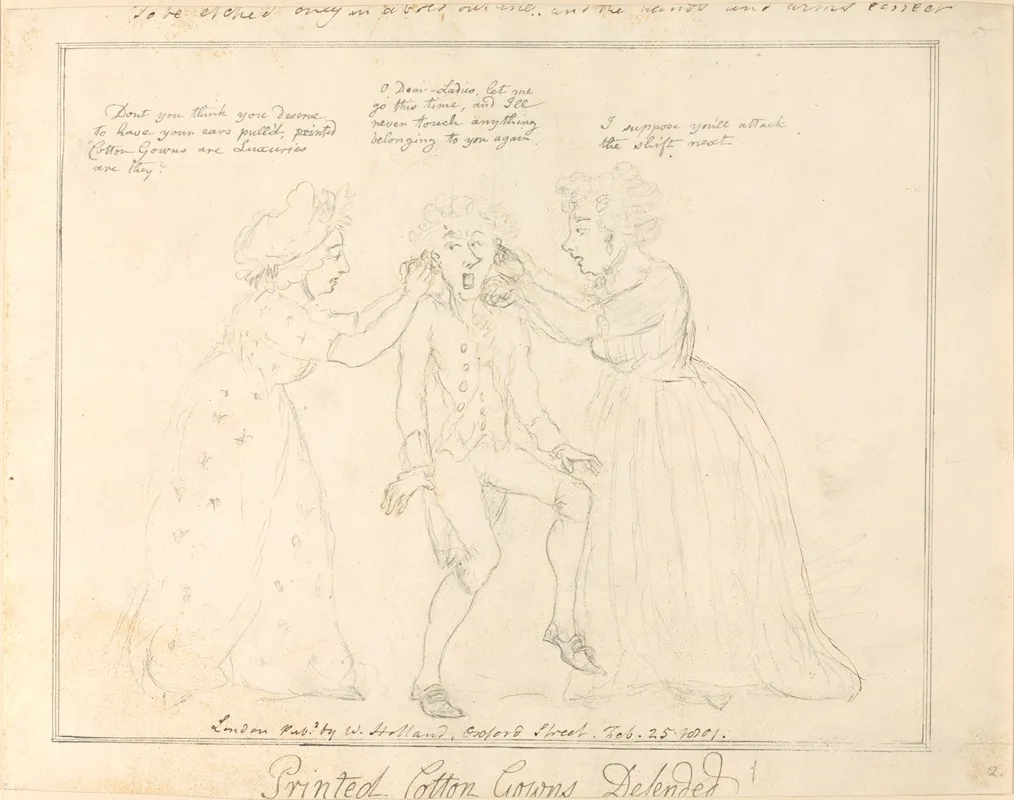 To be etched only in a bold outline.. and the hands and arms correct
Dont you think you deserve
to have your ears pull'd, printed
Cotton Gowns are Luxuries
are they?
O Dear Ladies, let me
go this time, and I'll
never touch anything
belonging to you again.
I suppose you'll attack
the shift next.
London Pub.d by W. Holland, Oxford Street. Feb. 25. 1801.
Printed Cotton Gowns Defended!
2.